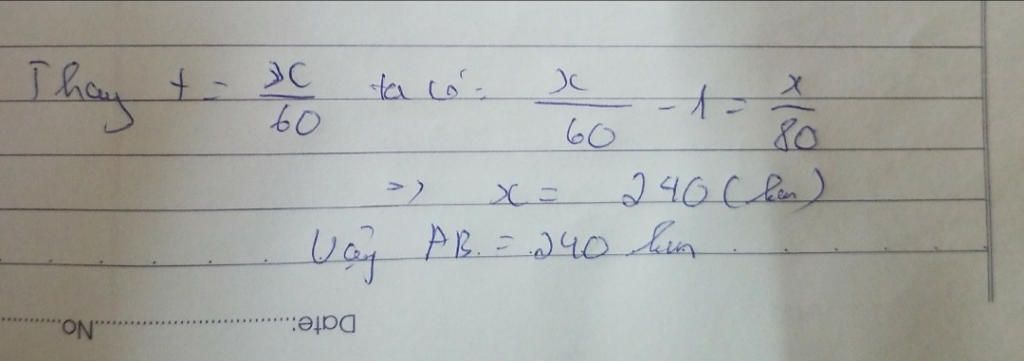 Thay t = x/60 ta có: x/60 - 1 = x/80
=> x = 240 (km)
Vậy AB = 240 km
Date: No